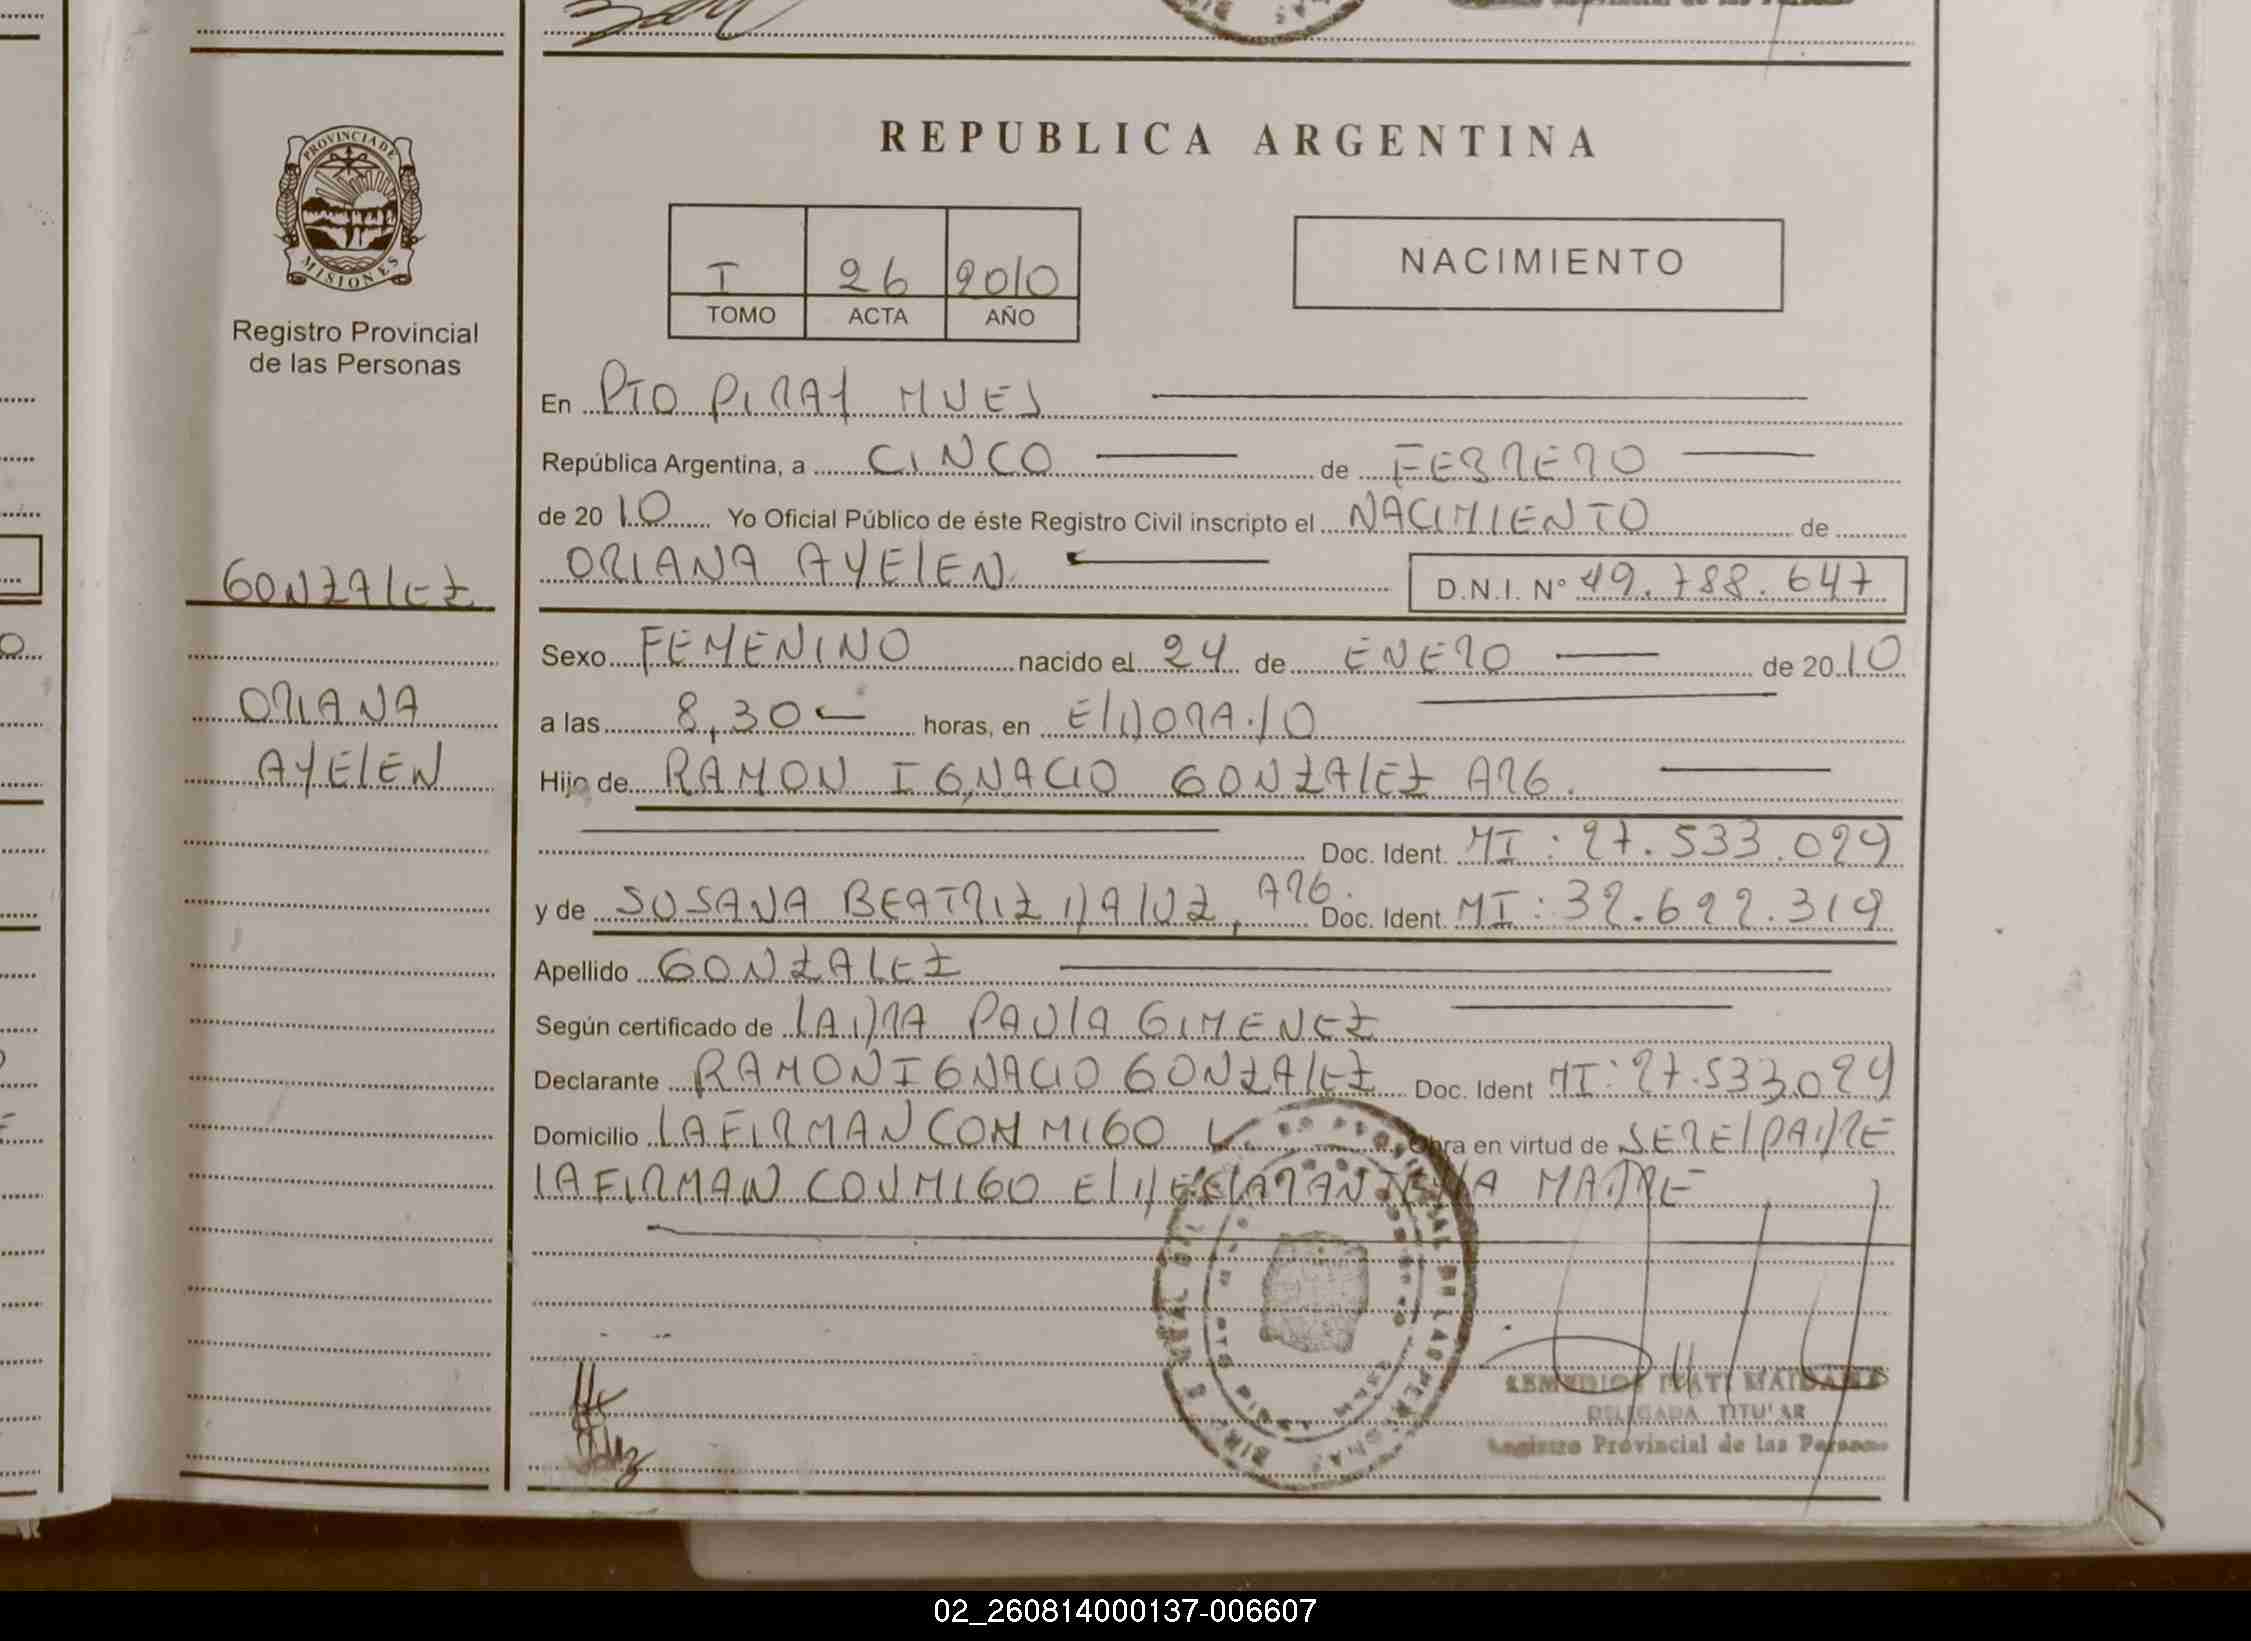 REPUBLICA ARGENTINA
PROVINCIA DE MISIONES
Registro Provincial
de las Personas
I 26 2010
TOMO ACTA AÑO
NACIMIENTO
En PTO PIRAY
República Argentina, a CINCO de FEBRERO
de 2010 Yo Oficial Público de éste Registro Civil inscripto el NACIMIENTO de
ORIANA AYELEN D.N.I. Nº 49.788.647
GONZALEZ
ORIANA
AYELEN
Sexo FEMENINO nacido el 24 de ENERO de 2010
a las 8,30 horas, en ELDORADO
Hijo de RAMON IGNACIO GONZALEZ ARG.
Doc. Ident. MI: 27.533.029
y de SUSANA BEATRIZ ARG. Doc. Ident. MI: 32.622.319
Apellido GONZALEZ
Según certificado de LA DRA PAULA GIMENEZ
Declarante RAMON IGNACIO GONZALEZ Doc. Ident MI: 27.533.029
Domicilio LA FIRMAN CONMIGO Obra en virtud de SER EL PADRE
LA FIRMAN CONMIGO EL DECLARANTE Y LA MADRE
DELEGADA TITULAR
Registro Provincial de las Personas
02_260814000137-006607